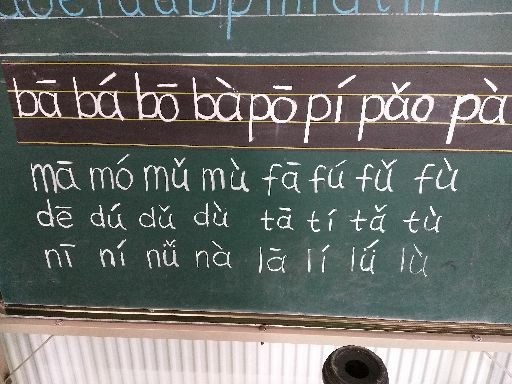 bā bá bō bà pō pí pǎo pà
mā mó mǔ mù fā fú fǔ fù
dē dú dǔ dù tā tí tǎ tù
nī ní nǚ nà lā lí lǘ lù